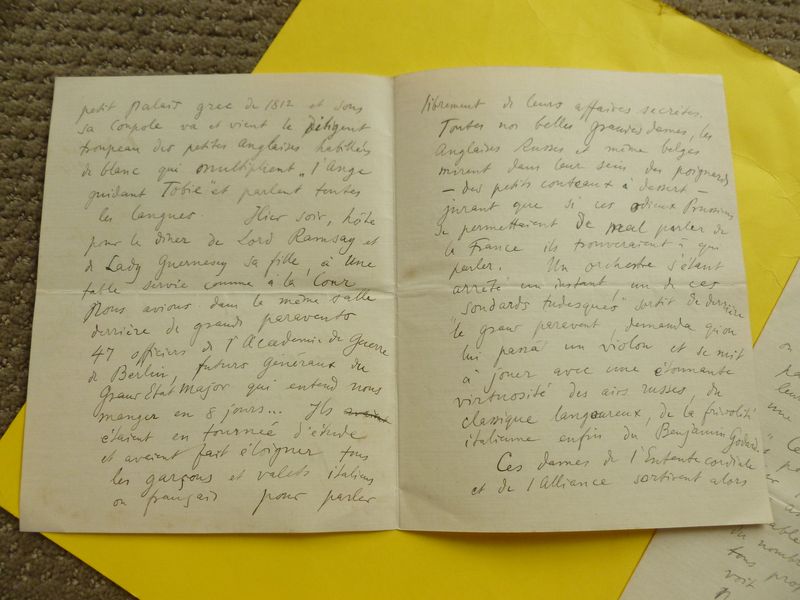 petit palais grec de 1812 et sous
sa Coupole va et vient le diligent
troupeau des petites Anglaises habillées
de blanc qui multiplient "l'Ange
guidant Tobie" et parlent toutes
les langues Hier soir, hôte
pour le dîner de Lord Ramsay et
de Lady Guernesey sa fille, à une
table servie comme à la Cour
Nous avions dans la même salle
derrière de grands paravents
47 officiers de l'Académie de Guerre
de Berlin, futurs généraux du
Grand Etat Major qui entend nous
manger en 8 jours... Ils avaient
étaient en tournée d'étude
et avaient fait éloigner tous
les garçons et valets italiens
ou français pour parler
librement de leurs affaires secrètes.
Toutes nos belles grandes dames, les
Anglaises Russes et même belges
mirent dans leur sein des poignards
— des petits couteaux à dessert —
jurant que si ces odieux Prussiens
se permettaient de mal parler de
la France ils trouveraient à qui
parler. Un orchestre s'étant
arrêté un instant, un de ces
"soudards tudesques" sortit de derrière
le grand paravent, demanda qu'on
lui passât un violon et se mit
à jouer avec une étonnante
virtuosité des airs russes, du
classique langoureux, de la frivolité
italienne enfin du Benjamin Godard
Ces dames de l'Entente cordiale
et de l'Alliance sortirent alors
un nombre
tous prop
voit